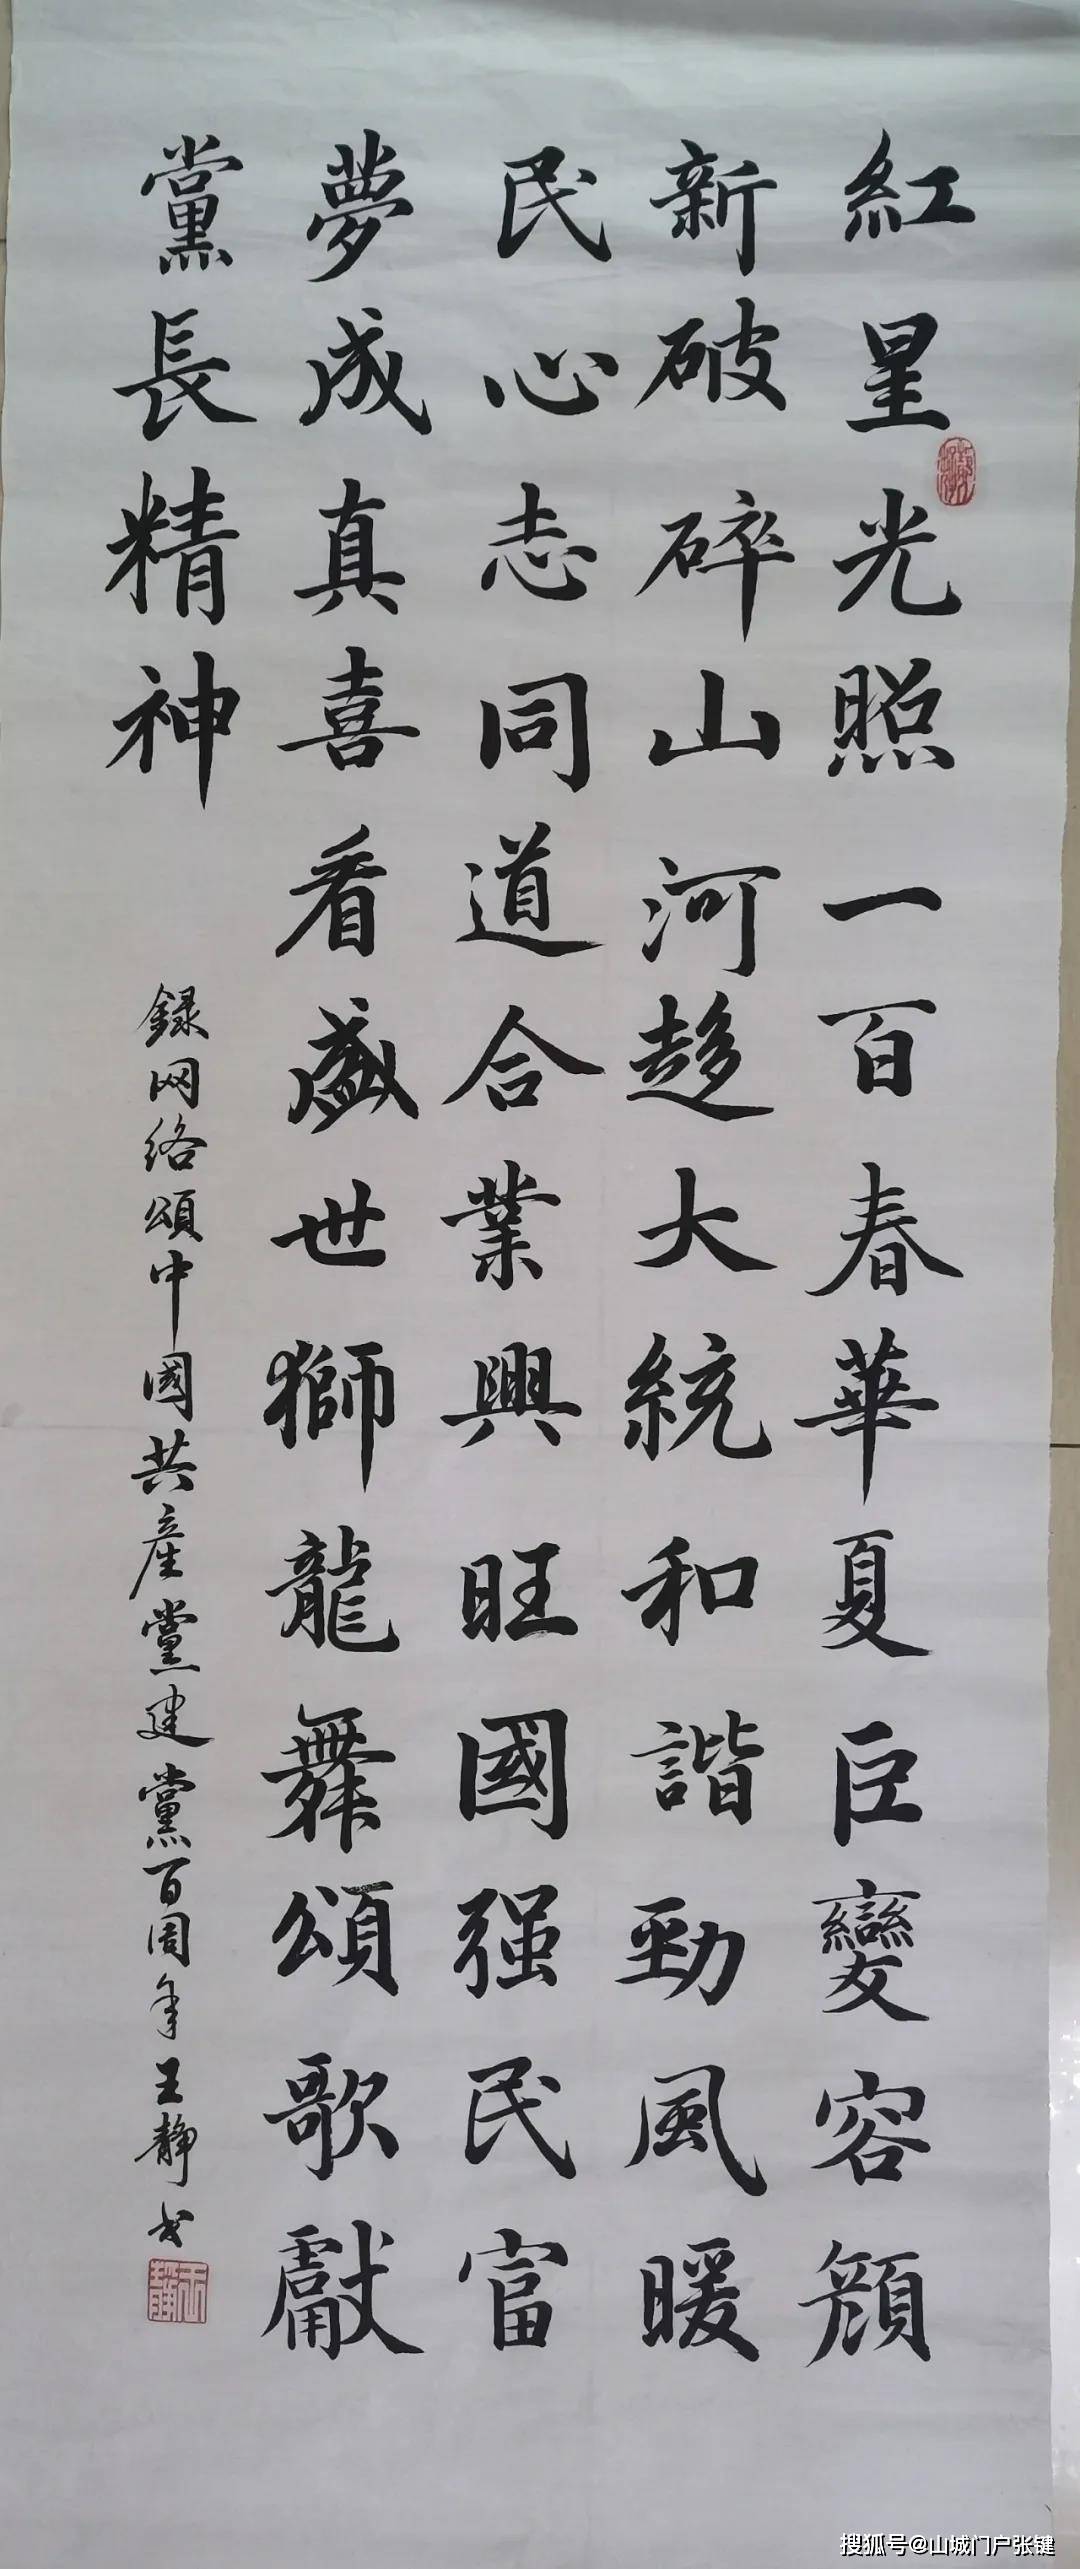 紅星光照一百春華夏巨變容顔
新破碎山河趨大統和諧勁風暖
民心志同道合業興旺國强民富
夢成真喜看盛世獅龍舞頌歌獻
黨長精神
録网络頌中國共產黨建黨百周年王靜书
搜狐号@山城门户张键